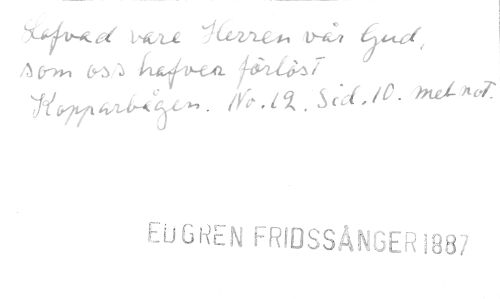 Lofvad vare Herren vår Gud,
som oss hafver förlöst
Kopparbågen. No. 12. Sid. 10. met not.
EDGREN FRIDSSÅNGER 1887